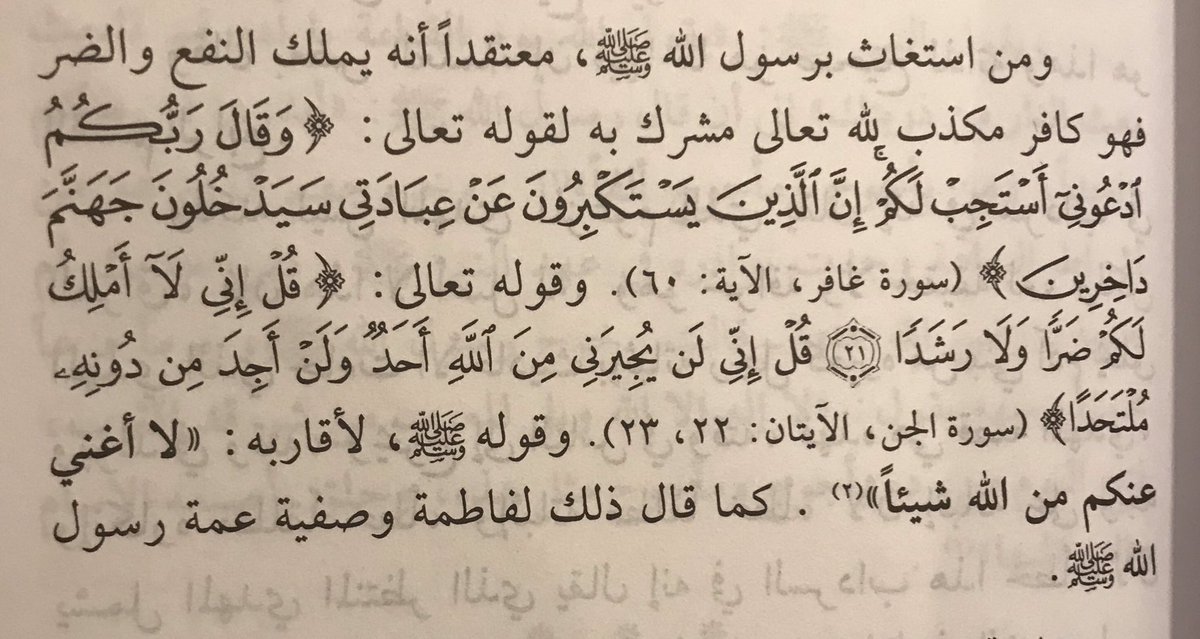 ومن استغاث برسول الله ﷺ، معتقداً أنه يملك النفع والضر
فهو كافر مكذب لله تعالى مشرك به لقوله تعالى: ﴿وَقَالَ رَبُّكُمُ
ٱدْعُونِيٓ أَسْتَجِبْ لَكُمْۚ إِنَّ ٱلَّذِينَ يَسْتَكْبِرُونَ عَنْ عِبَادَتِي سَيَدْخُلُونَ جَهَنَّمَ
دَاخِرِينَ﴾ (سورة غافر، الآية: ٦٠). وقوله تعالى: ﴿قُلْ إِنِّي لَآ أَمْلِكُ
لَكُمْ ضَرًّا وَلَا رَشَدًا ۝٢١ قُلْ إِنِّي لَن يُجِيرَنِي مِنَ ٱللَّهِ أَحَدٌ وَلَنْ أَجِدَ مِن دُونِهِۦ
مُلْتَحَدًا﴾ (سورة الجن، الآيتان: ٢٢، ٢٣). وقوله ﷺ، لأقاربه: «لا أغني
عنكم من الله شيئاً»(٢) . كما قال ذلك لفاطمة وصفية عمة رسول
الله ﷺ.